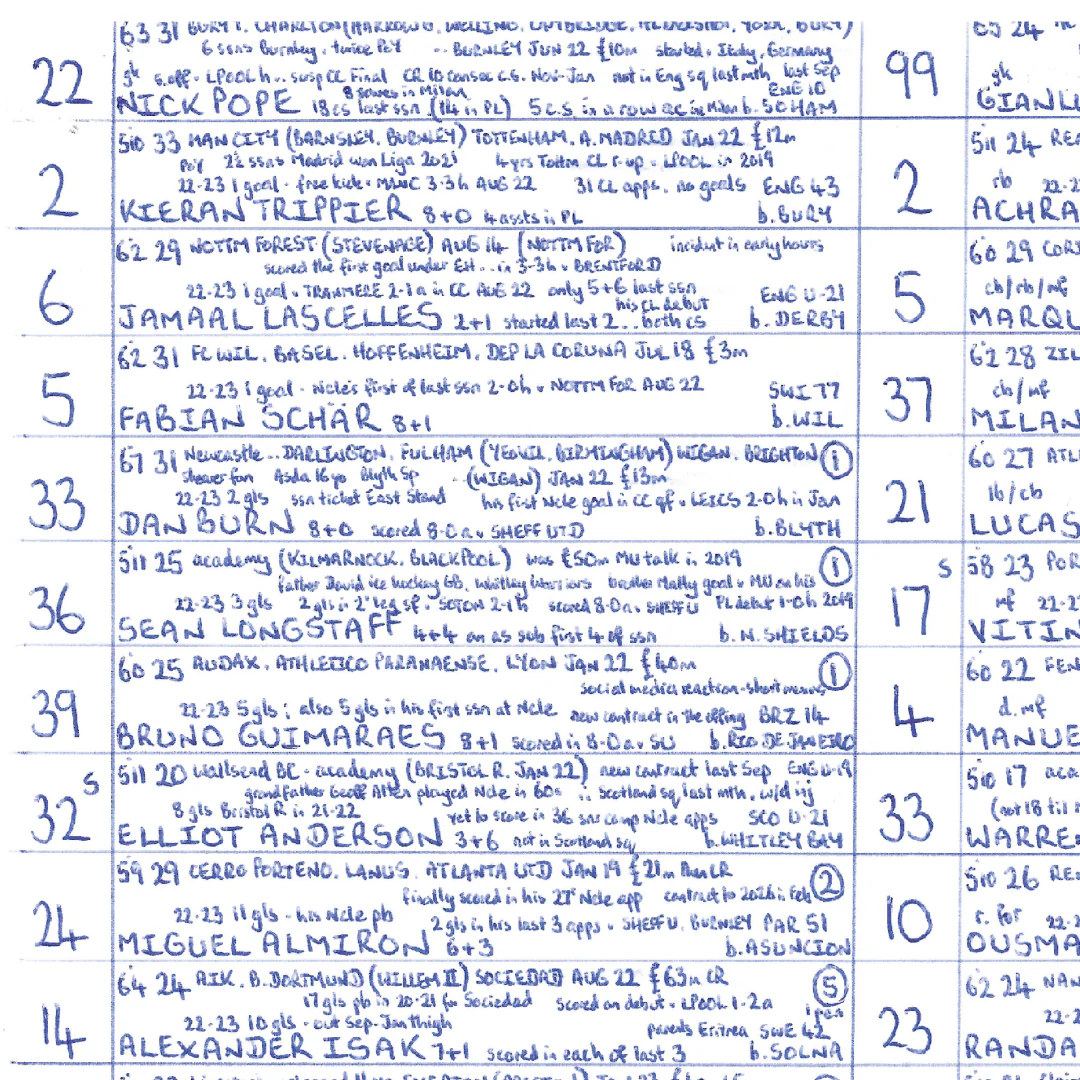 63 31 BURY T. CHARLTON (HARROW B, WELLING, CAMBRIDGE, ALDERSHOT, YORK, BURY)
6 ssns Burnley. twice PoY .. BURNLEY JUN 22 £10m started v Italy, Germany
gk s.off v LPOOL h .. susp CC Final CR 10 consec c.s. Nov-Jan not in Eng sq last mth last Sep
8 saves in Milan ENG 10
22 NICK POPE 18 cs last ssn (14 in PL) 5 c.s. in a row ac in Milan b. SOHAM
510 33 MAN CITY (BARNSLEY, BURNLEY) TOTTENHAM, A. MADRID JAN 22 £12m
PoY 2½ ssns Madrid won Liga 2021 4 yrs Tottm CL r-up v LPOOL in 2019
22-23 1 goal - free kick v MANC 3-3 h AUG 22 31 CL apps, no goals ENG 43
2 KIERAN TRIPPIER 8+0 4 assts in PL b. BURY
62 29 NOTTM FOREST (STEVENAGE) AUG 14 (NOTTM FOR) incident in early hours
scored the first goal under EH .. in 3-3 h v BRENTFORD
22-23 1 goal v TRANMERE 2-1 a in CC AUG 22 only 5+6 last ssn ENG U-21
his CL debut
6 JAMAAL LASCELLES 2+1 started last 2 .. both cs b. DERBY
62 31 FC WIL. BASEL. HOFFENHEIM. DEP LA CORUNA JUL 18 £3m
22-23 1 goal - Ncle's first of last ssn 2-0 h v NOTTM FOR AUG 22 SWI 77
5 FABIAN SCHÄR 8+1 b. WIL
67 31 Newcastle .. DARLINGTON. FULHAM (YEOVIL, BIRMINGHAM) WIGAN. BRIGHTON 1
shearer fan Asda 16yo Blyth Sp (WIGAN) JAN 22 £13m
22-23 2 gls ssn ticket East Stand his first Ncle goal in CC qf v LEICS 2-0 h in Jan
33 DAN BURN 8+0 scored 8-0 a v SHEFF UTD b. BLYTH
511 25 academy (KILMARNOCK. BLACKPOOL) was £50m MU talk in 2019 1
father David ice hockey GB, Whitley Warriors brother Matty goal v MU on his
22-23 3 gls 2 gls in 2nd leg sf v SOTON 2-1 h scored 8-0 a v SHEFF U PL debut 1-0 h 2019
36 SEAN LONGSTAFF 4+4 on as sub first 4 of ssn b. N. SHIELDS
60 25 AUDAX. ATHLETICO PARANAENSE. LYON JAN 22 £40m 1
social media reaction - short means
22-23 5 gls; also 5 gls in his first ssn at Ncle new contract in the offing BRZ 14
39 BRUNO GUIMARAES 8+1 scored in 8-0 a v SU b. RIO DE JANEIRO
S 511 20 Wallsend BC - academy (BRISTOL R. JAN 22) new contract last Sep ENG U-19
grandfather Geoff Allen played Ncle in 60s .. Scotland sq last mth, w/d inj
8 gls Bristol R in 21-22 yet to score in 36 snr comp Ncle apps SCO U-21
32 ELLIOT ANDERSON 3+6 not in Scotland sq b. WHITLEY BAY
59 29 CERRO PORTENO. LANUS. ATLANTA UTD JAN 19 £21m then CR 2
finally scored in his 27th Ncle app contract to 2026 in Feb
22-23 11 gls - his Ncle pb 2 gls in his last 3 apps v SHEFF U, BURNLEY PAR 51
24 MIGUEL ALMIRON 6+3 b. ASUNCION
64 24 AIK. B. DORTMUND (WILLEM II) SOCIEDAD AUG 22 £63m CR 5
17 gls pb in 20-21 for Sociedad scored on debut v LPOOL 1-2 a 1 pen
22-23 10 gls - out Sep-Jan thigh parents Eritrea SWE 42
14 ALEXANDER ISAK 7+1 scored in each of last 3 b. SOLNA
63 24
gk
99 GIANLU
511 24 REA
rb 22-2
2 ACHRA
60 29 COR
cb/rb/mf
5 MARQU
62 28 ZIL
cb/mf
37 MILAN
60 27 ATL
lb/cb
21 LUCAS
S 58 23 POR
mf 22-2
17 VITIN
60 22 FEN
d.mf
4 MANUE
510 17 aca
(not 18 til
33 WARRE
510 26 REN
r. for 22-2
10 OUSMA
62 24 NAN
22-2
23 RANDA